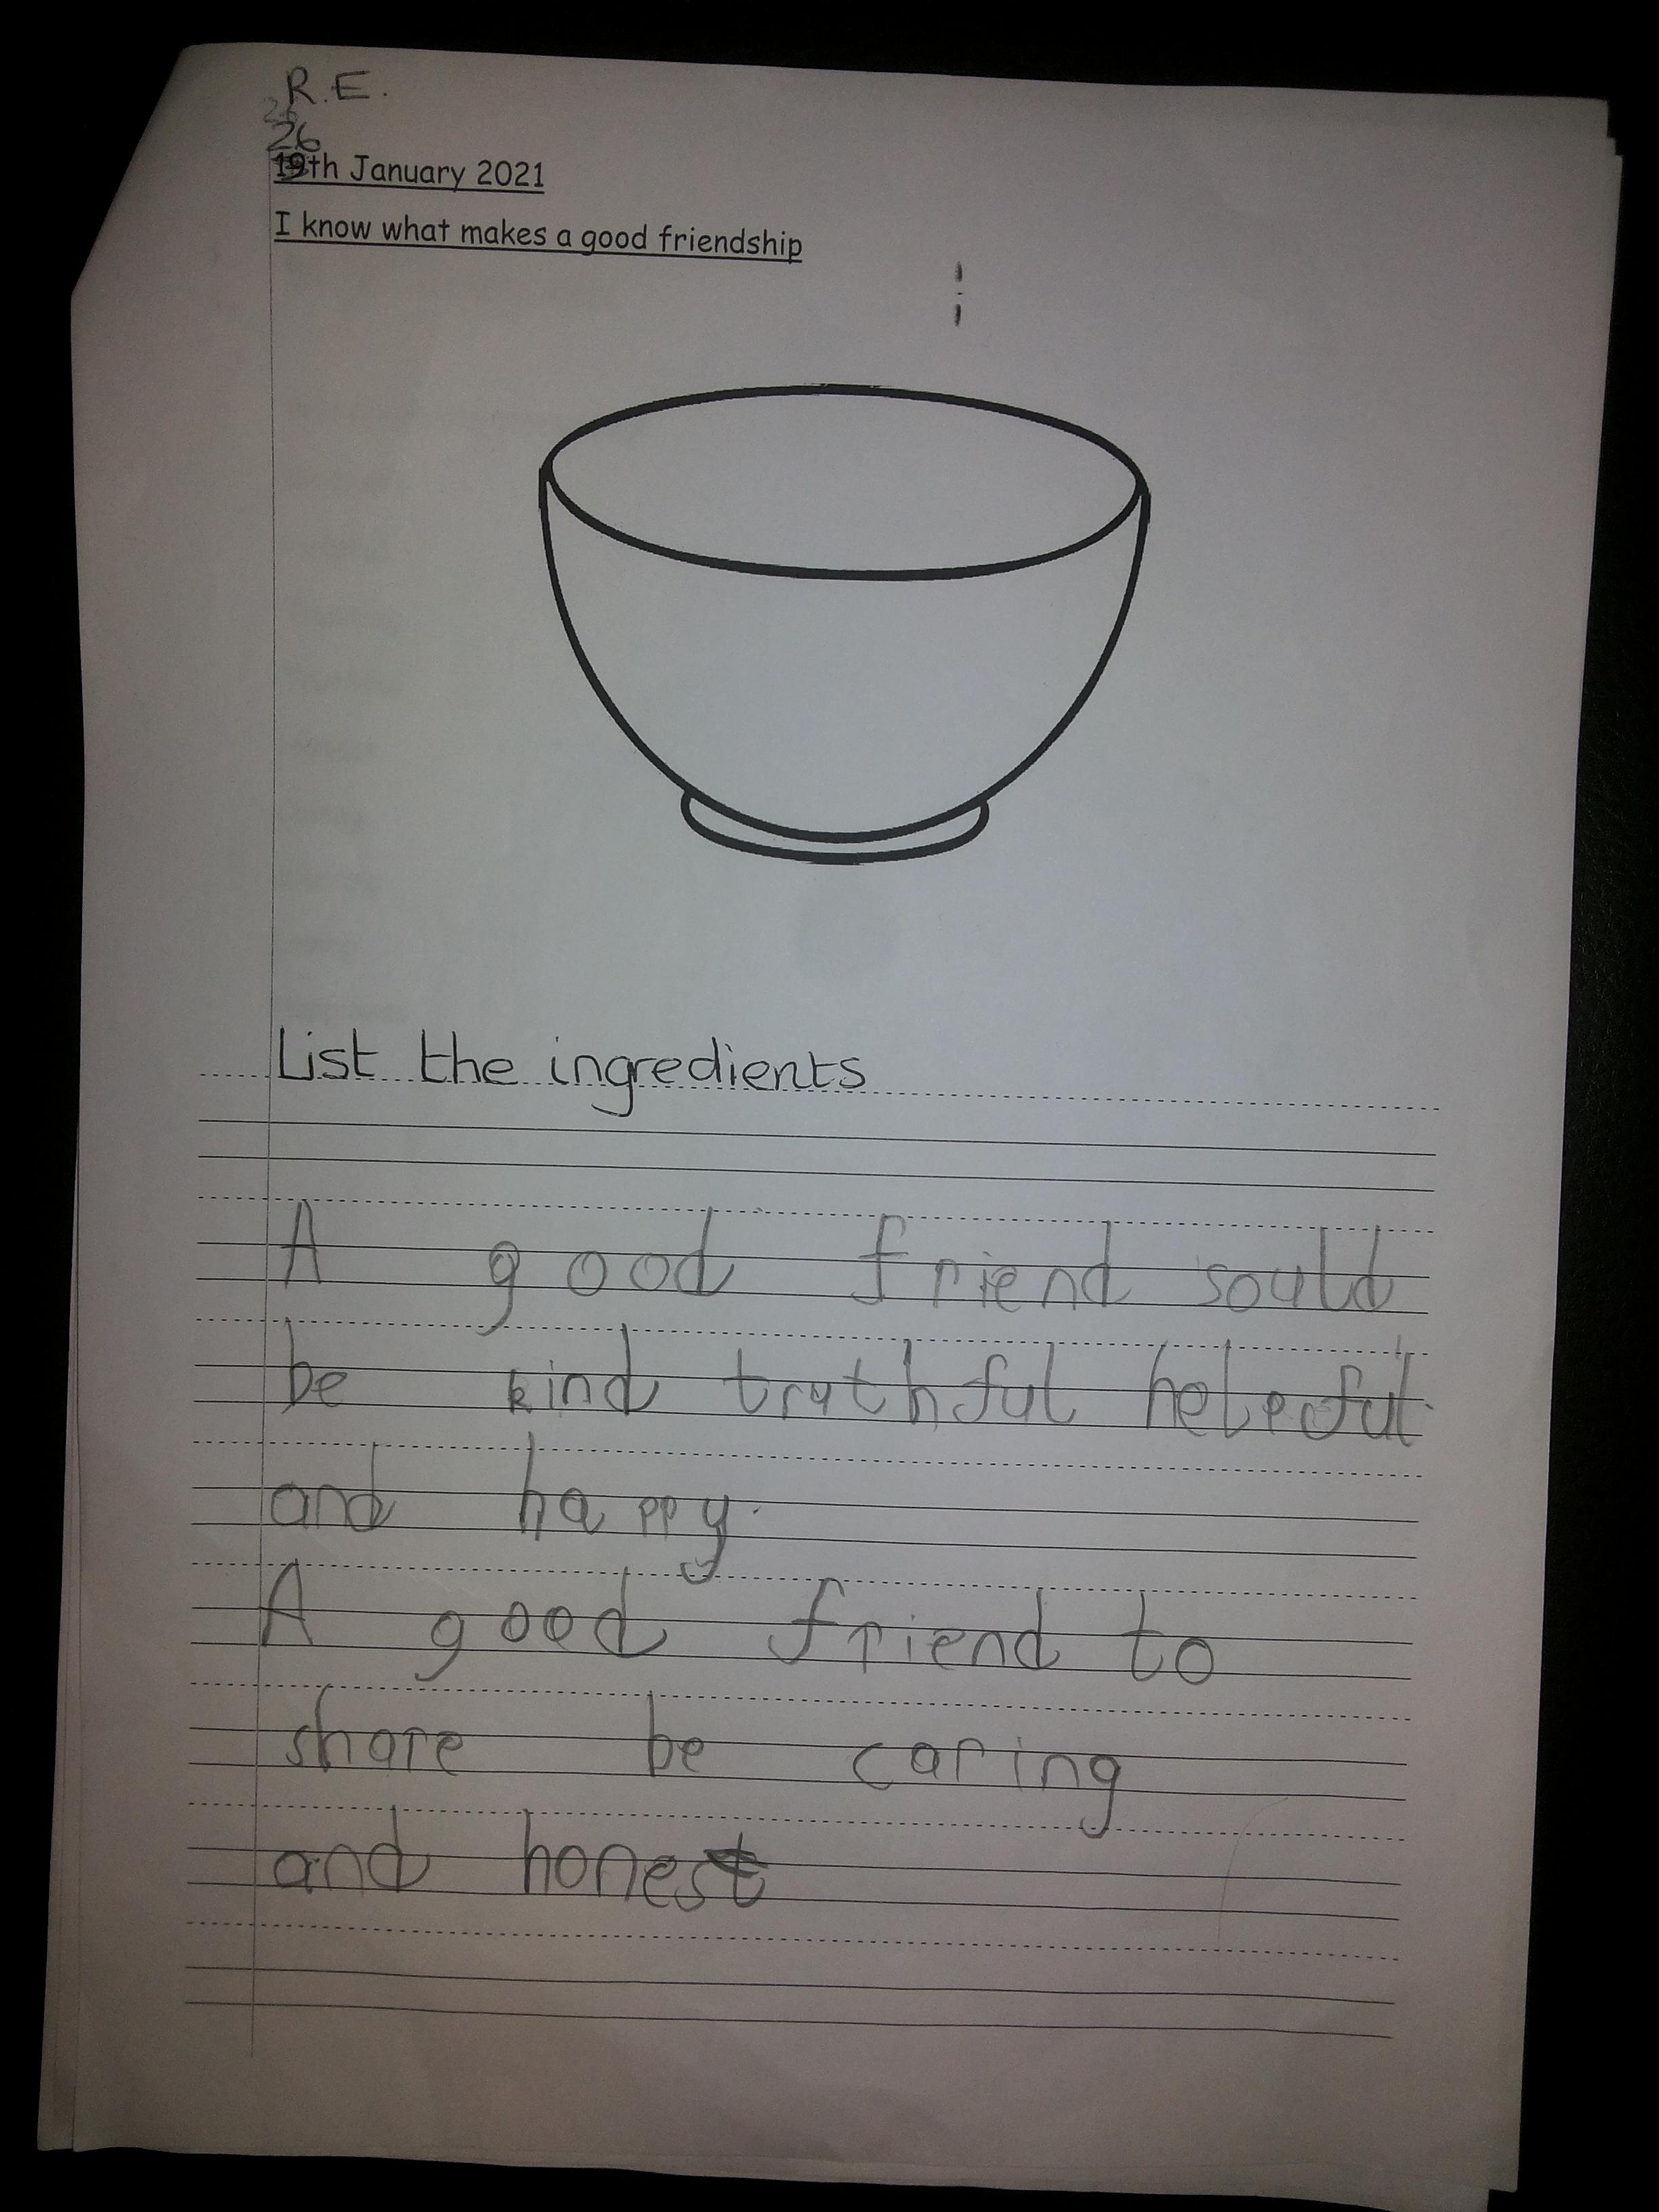 R.E.
26
26
19th January 2021
I know what makes a good friendship
List the ingredients
A good friend sould
be kind truthful helpful
and happy.
A good friend to
share be caring
and honest